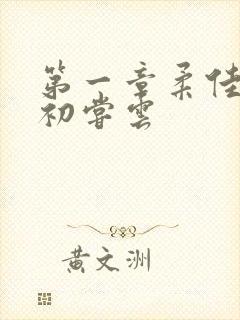 第一章柔佳
初尝雲
黄文洲